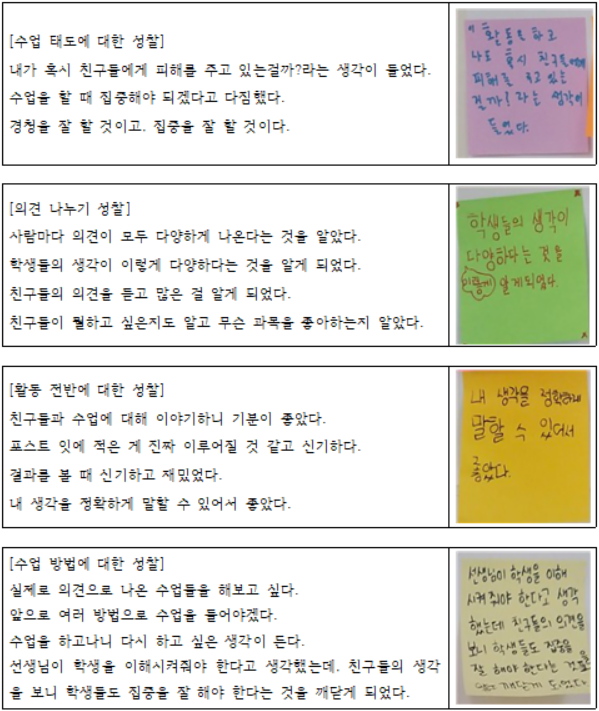 [수업 태도에 대한 성찰]
내가 혹시 친구들에게 피해를 주고 있는걸까?라는 생각이 들었다.
수업을 할 때 집중해야 되겠다고 다짐했다.
경청을 잘 할 것이고. 집중을 잘 할 것이다.
이 활동을 하고
나도 혹시 친구들에게
피해를 주고 있는
걸까? 라는 생각이
들었다.
[의견 나누기 성찰]
사람마다 의견이 모두 다양하게 나온다는 것을 알았다.
학생들의 생각이 이렇게 다양하다는 것을 알게 되었다.
친구들의 의견을 듣고 많은 걸 알게 되었다.
친구들이 뭘하고 싶은지도 알고 무슨 과목을 좋아하는지 알았다.
학생들의 생각이
다양하다는 것을
이렇게 알게되었다.
[활동 전반에 대한 성찰]
친구들과 수업에 대해 이야기하니 기분이 좋았다.
포스트 잇에 적은 게 진짜 이루어질 것 같고 신기하다.
결과를 볼 때 신기하고 재밌었다.
내 생각을 정확하게 말할 수 있어서 좋았다.
내 생각을 정확하게
말할 수 있어서
좋았다.
[수업 방법에 대한 성찰]
실제로 의견으로 나온 수업들을 해보고 싶다.
앞으로 여러 방법으로 수업을 들어야겠다.
수업을 하고나니 다시 하고 싶은 생각이 든다.
선생님이 학생을 이해시켜줘야 한다고 생각했는데. 친구들의 생각
을 보니 학생들도 집중을 잘 해야 한다는 것을 깨닫게 되었다.
선생님이 학생을 이해
시켜줘야 한다고 생각
했는데 친구들의 의견을
보니 학생들도 집중을
잘 해야 한다는 것을
깨닫게 되었다